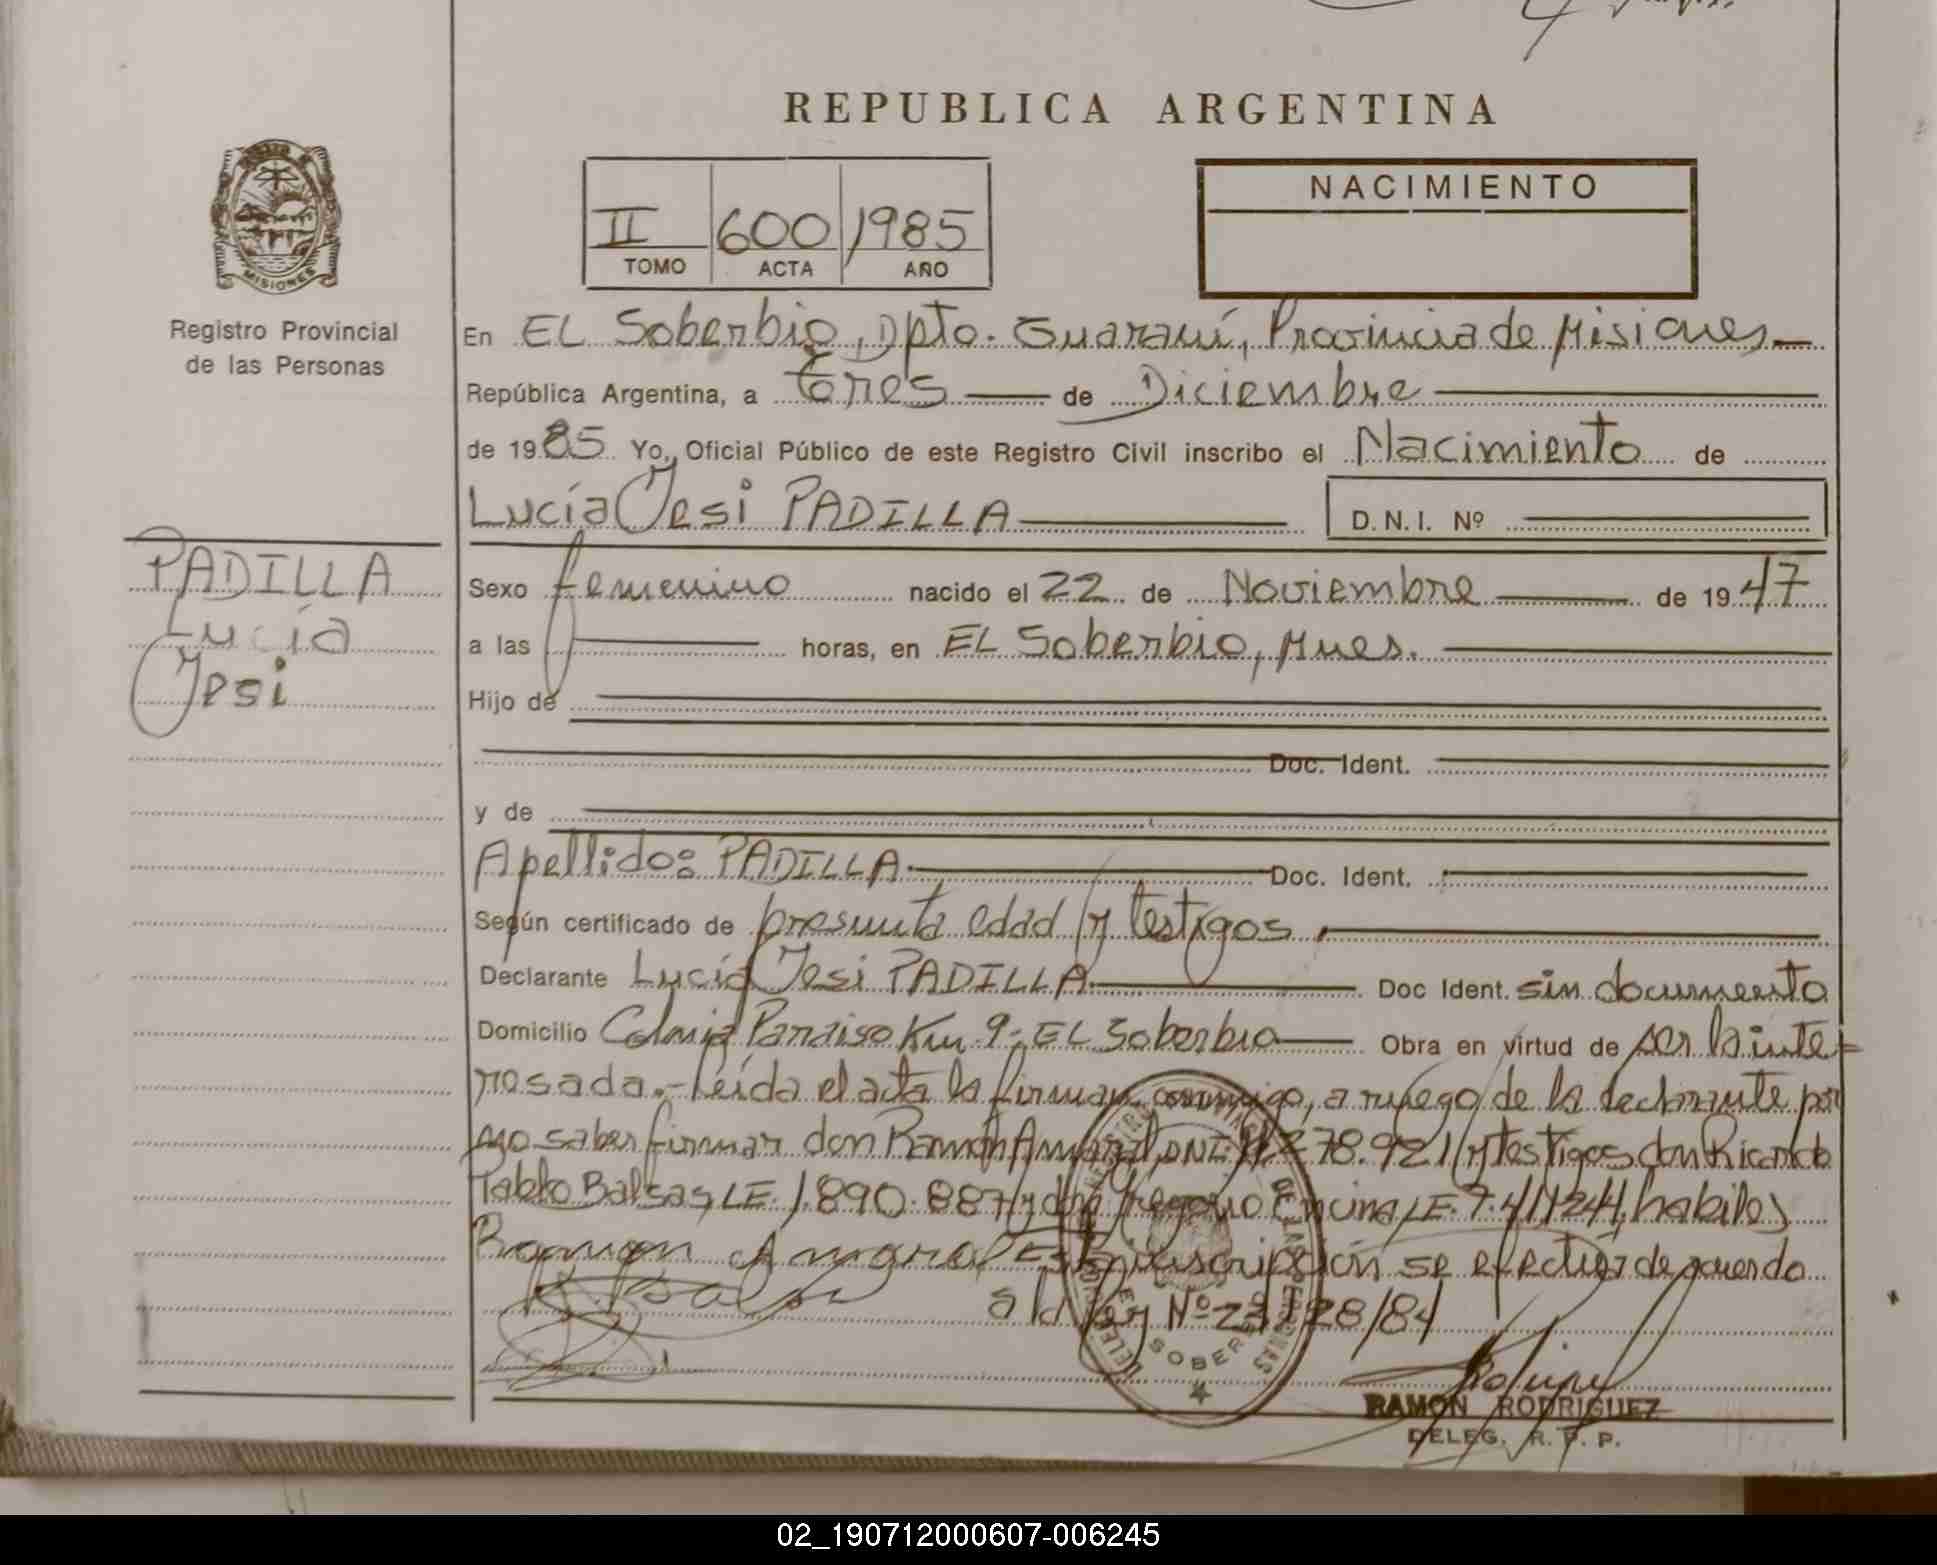 REPUBLICA ARGENTINA
II 600 1985
TOMO ACTA AÑO
NACIMIENTO
MISIONES
Registro Provincial
de las Personas
En EL Soberbio, Dpto. Guaraní, Provincia de Misiones
República Argentina, a tres de Diciembre
de 1985 Yo, Oficial Público de este Registro Civil inscribo el Nacimiento de
Lucía Yesi PADILLA D.N.I. Nº
PADILLA
Lucía
Yesi
Sexo femenino nacido el 22 de Noviembre de 1947
a las horas, en EL Soberbio, Mnes.
Hijo de
Doc. Ident.
y de
Apellido: PADILLA Doc. Ident.
Según certificado de presunta edad y testigos
Declarante Lucía Yesi PADILLA Doc Ident. sin documento
Domicilio Colonia Paraiso Km 9 - EL Soberbio Obra en virtud de ser la inte-
resada.- Leída el acta la firman conmigo, a ruego de la declarante por
no saber firmar don Ramón Amaral DNI. y testigos don Ricardo
Pablo Balsas, LE. 1.890.887 y don Gregorio Encina, LE. habiles
Ramon Amaral Esta inscripción se efectúa de acuerdo
a la ley Nº 28/84
SOBERBIO
RAMON RODRIGUEZ
DELEG. R. P. P.
02_190712000607-006245